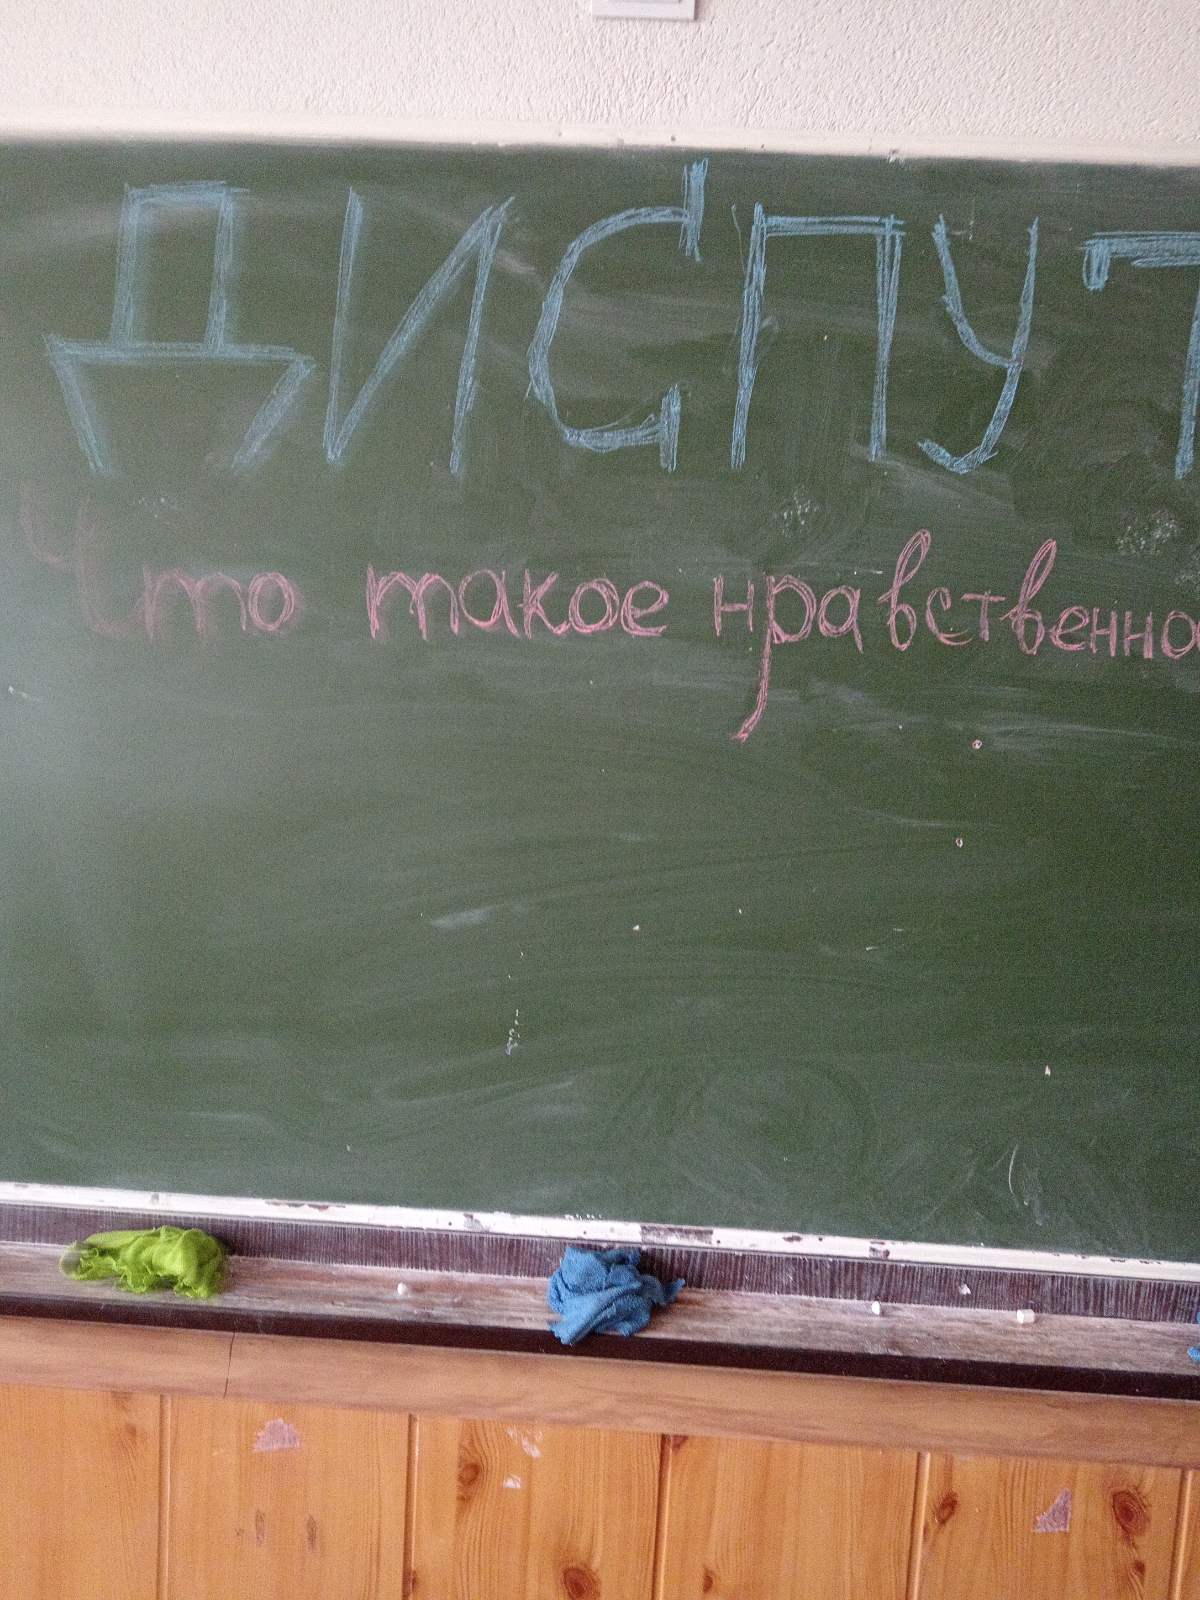 ДИСПУТ
Что такое нравственно